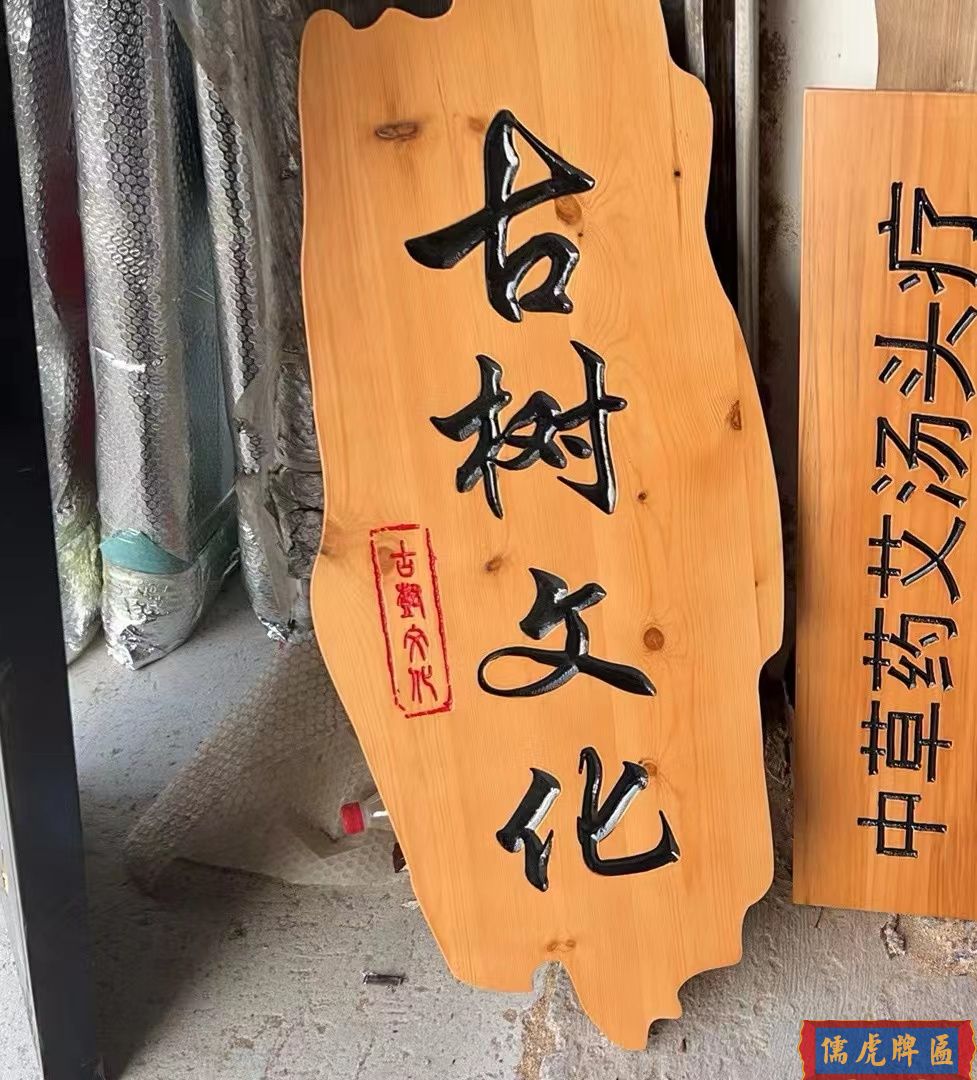 古树文化
古樹文化
中草药艾汤头疗
儒虎牌匾